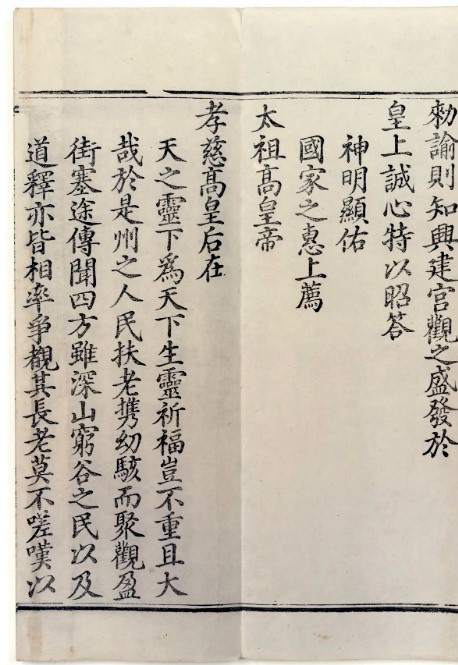 勑諭則知興建宮觀之盛發於
皇上誠心特以昭答
神明顯佑
國家之惠上薦
太祖高皇帝
孝慈高皇后在
天之靈下爲天下生靈祈福豈不重且大
哉於是州之人民扶老攜幼駭而聚觀盈
街塞途傳聞四方雖深山窮谷之民以及
道釋亦皆相率爭觀其長老莫不嗟嘆以